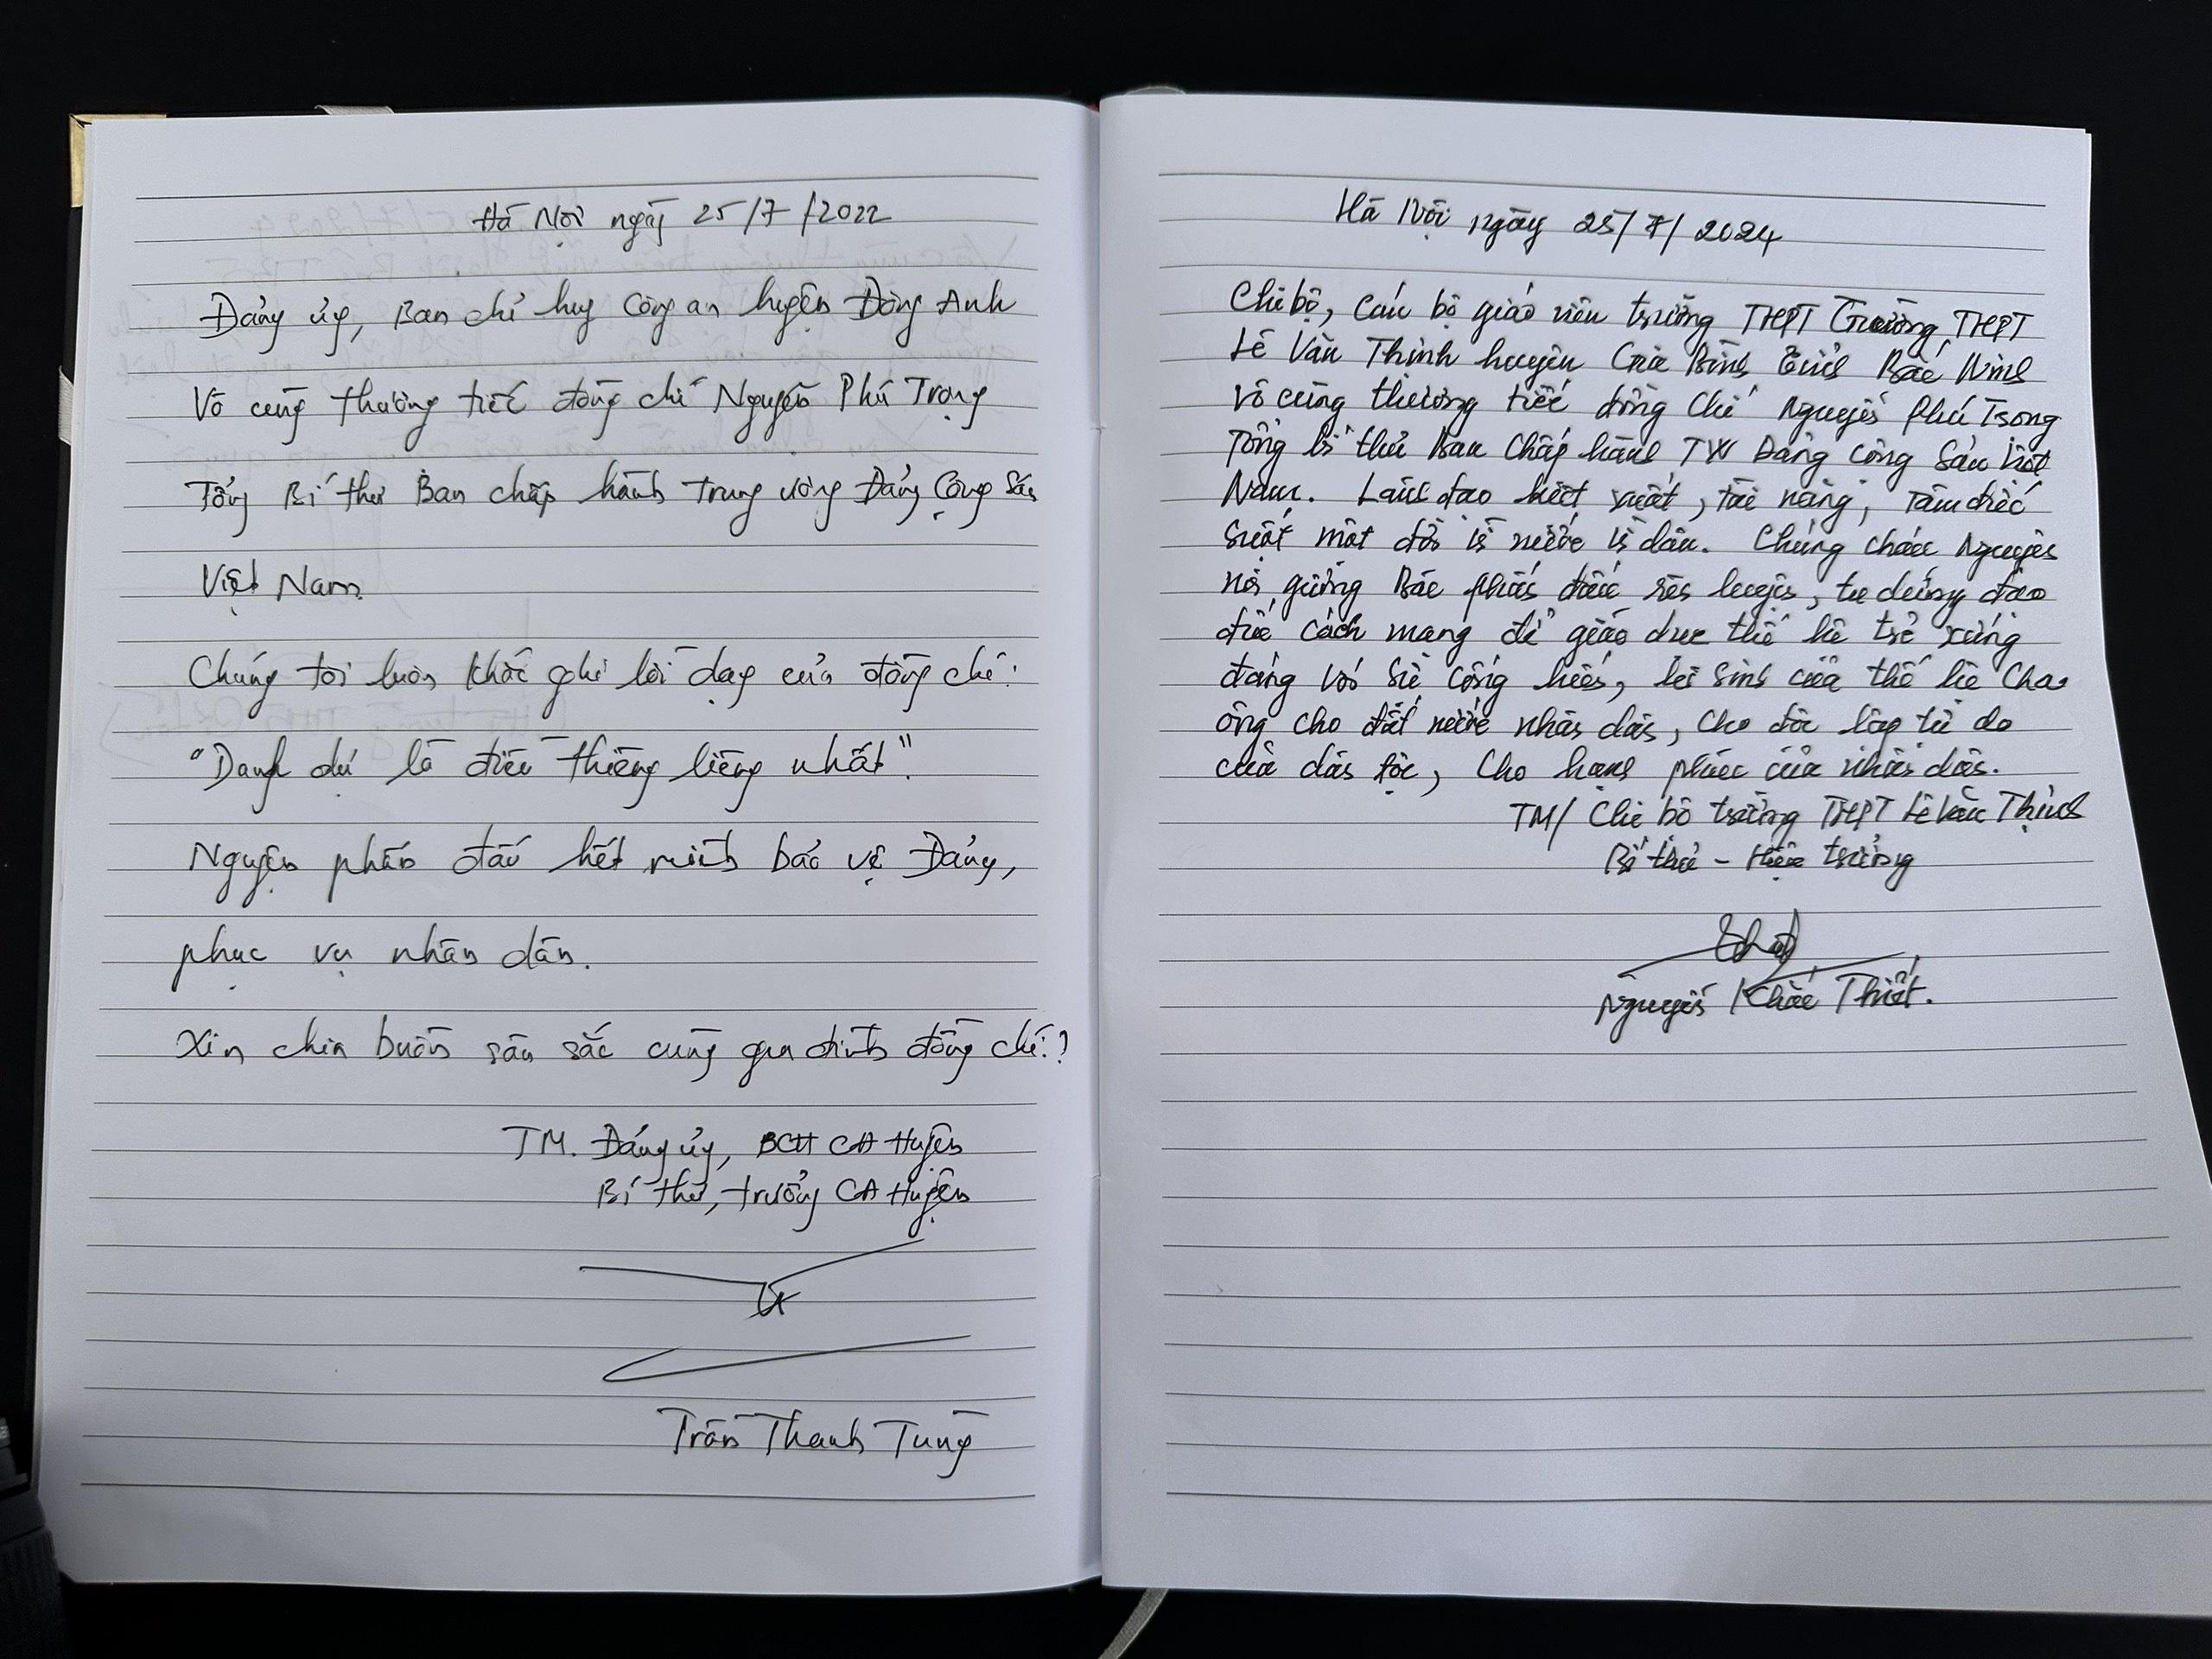 Hà Nội ngày 25/7/2022
Đảng ủy, Ban chỉ huy Công an huyện Đông Anh
Vô cùng thương tiếc đồng chí Nguyễn Phú Trọng
Tổng Bí thư Ban chấp hành Trung ương Đảng Cộng Sản
Việt Nam.
Chúng tôi luôn khắc ghi lời dạy của đồng chí:
"Danh dự là điều thiêng liêng nhất".
Nguyện phấn đấu hết mình bảo vệ Đảng,
phục vụ nhân dân.
Xin chia buồn sâu sắc cùng gia đình đồng chí!
TM. Đảng ủy, BCH CA Huyện
Bí thư, trưởng CA Huyện
Trần Thanh Tùng
Hà Nội ngày 25/7/2024
Chi bộ, cán bộ giáo viên trường THPT Trường THPT
Lê Văn Thịnh huyện Gia Bình tỉnh Bắc Ninh
vô cùng thương tiếc đồng chí Nguyễn Phú Trọng
Tổng bí thư Ban Chấp hành TW Đảng Cộng Sản Việt
Nam. Lãnh đạo kiệt xuất, tài năng, Tâm đức
Suốt một đời vì nước vì dân. Chúng cháu Nguyện
noi gương Bác phấn đấu rèn luyện, tu dưỡng đạo
đức cách mạng để giáo dục thế hệ trẻ xứng
đáng với sự cống hiến, hi sinh của thế hệ Cha
ông cho đất nước nhân dân, cho độc lập tự do
của dân tộc, cho hạnh phúc của nhân dân.
TM/ Chi bộ trường THPT Lê Văn Thịnh
Bí thư - Hiệu trưởng
Nguyễn Khắc Thiết.